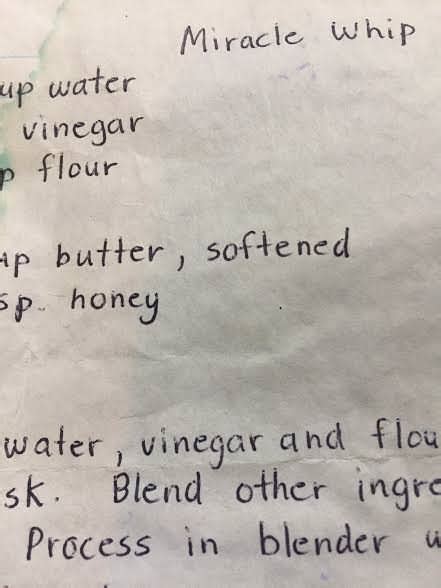 Miracle Whip
up water
vinegar
p flour
up butter, softened
sp. honey
water, vinegar and flou
sk. Blend other ingre
Process in blender u